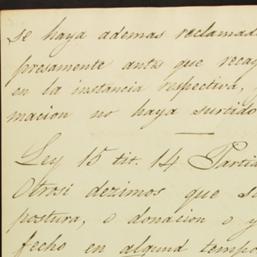 se haya ademas reclamad
presamente antes que recay
en la instancia respectiva,
macion no haya surtido
Ley 15 tit. 14 Partid
Otrosi dezimos que si
postura, o donacion o y
fecho en algund tempo